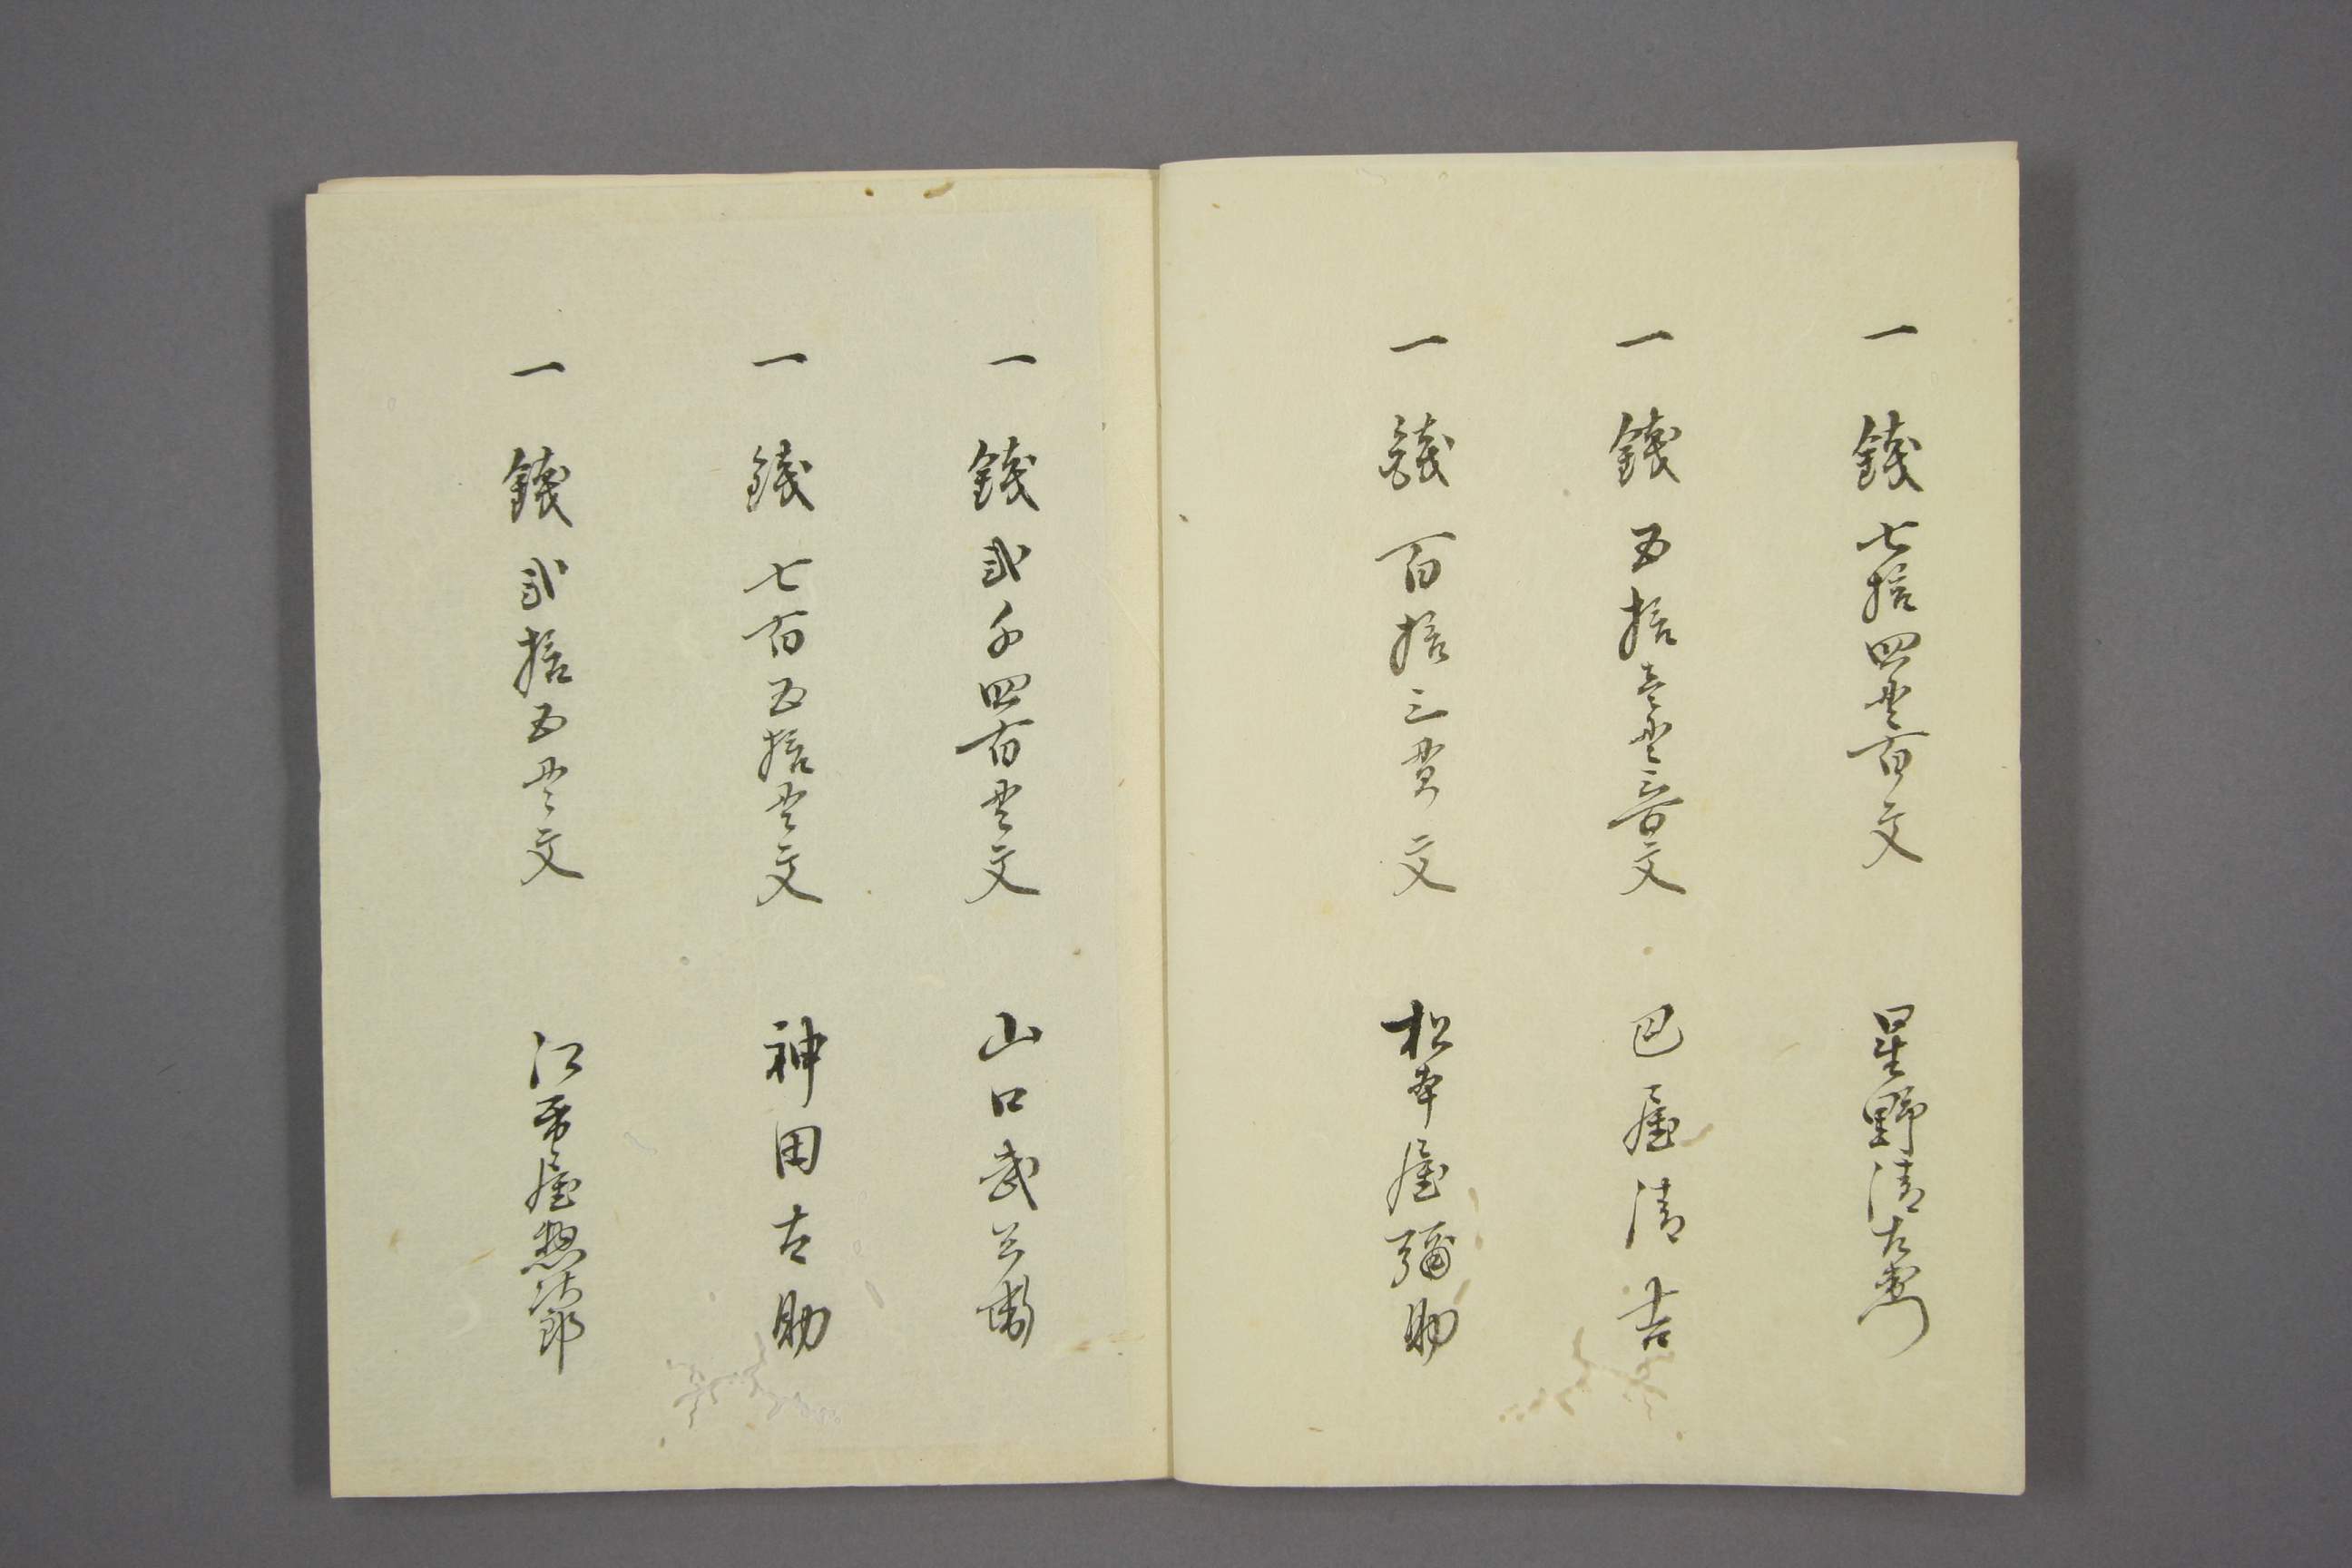 一 錢七拾四貫百文 星野清左衛門
一 錢五拾壹貫三百文 巴屋清吉
一 錢百拾三貫文 松本屋彌助
一 錢貳千四百貫文 山口武兵衛
一 錢七百五拾貫文 神田古助
一 錢貳拾五貫文 江戸屋惣次郎